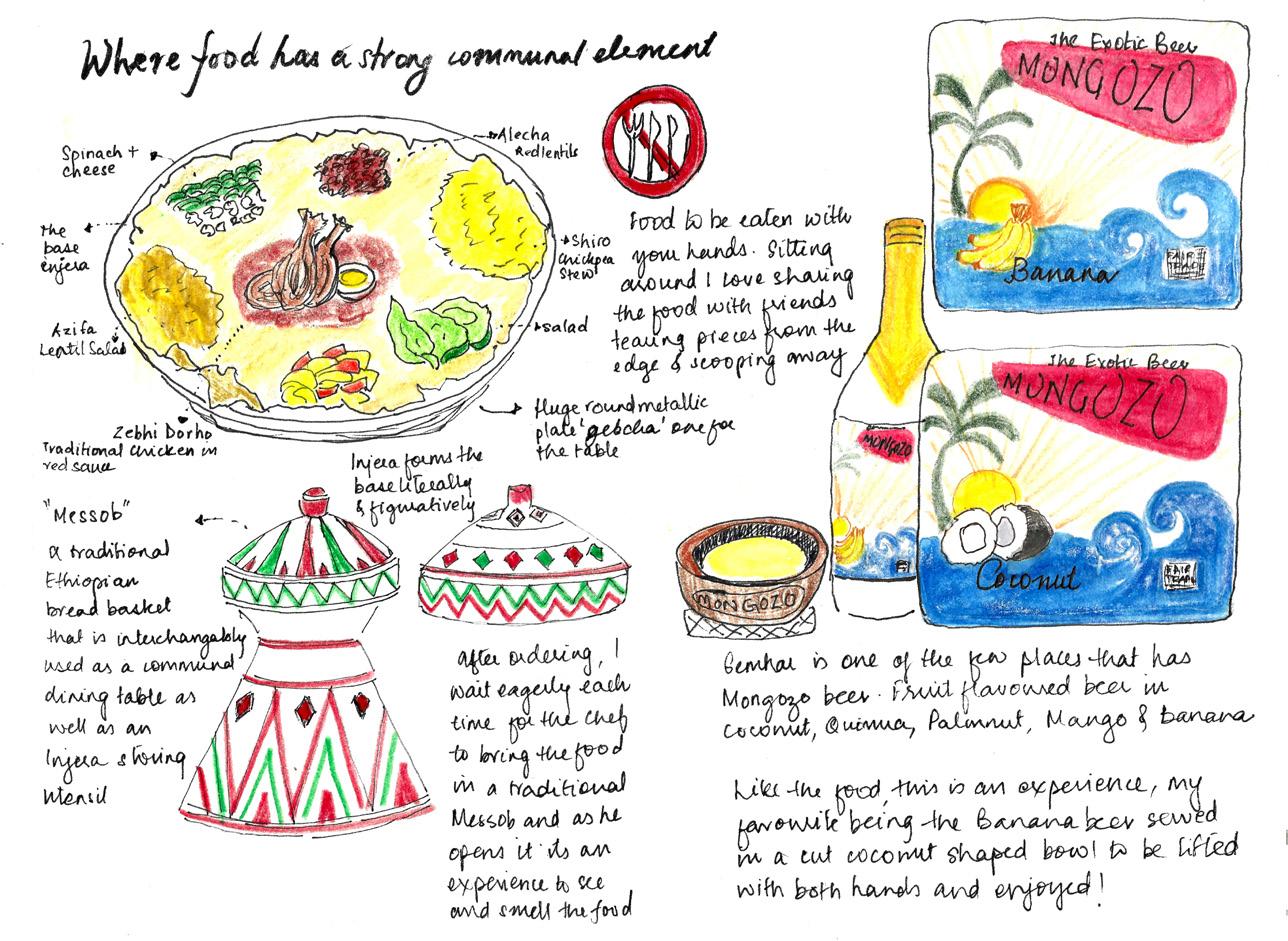 Where food has a strong communal element
Spinach +
cheese
The
base
enjera
Azifa
Lentil Salad
Zebhi Dorho
Traditional chicken in
red sauce
Alecha
Red lentils
Shiro
Chickpea
Stew
salad
Huge round metallic
plate 'gebcha' one for
the table
Injera forms the
base literally
& figuratively
Food to be eaten with
your hands. Sitting
around I love sharing
the food with friends
tearing pieces from the
edge & scooping away
The Exotic Beer
MONGOZO
Banana
FAIR
TRADE
The Exotic Beer
MONGOZO
Coconut
FAIR
TRADE
MONGOZO
MONGOZO
"Messob"
a traditional
Ethiopian
bread basket
that is interchangably
used as a communal
dining table as
well as an
Injera storing
utensil
After ordering, I
wait eagerly each
time for the chef
to bring the food
in a traditional
Messob and as he
opens it its an
experience to see
and smell the food
is one of the few places that has
Mongozo beer. Fruit flavoured beer in
coconut, Quinua, Palmnut, Mango & banana
Like the food, this is an experience, my
favourite being the Banana beer served
in a cut coconut shaped bowl to be lifted
with both hands and enjoyed!